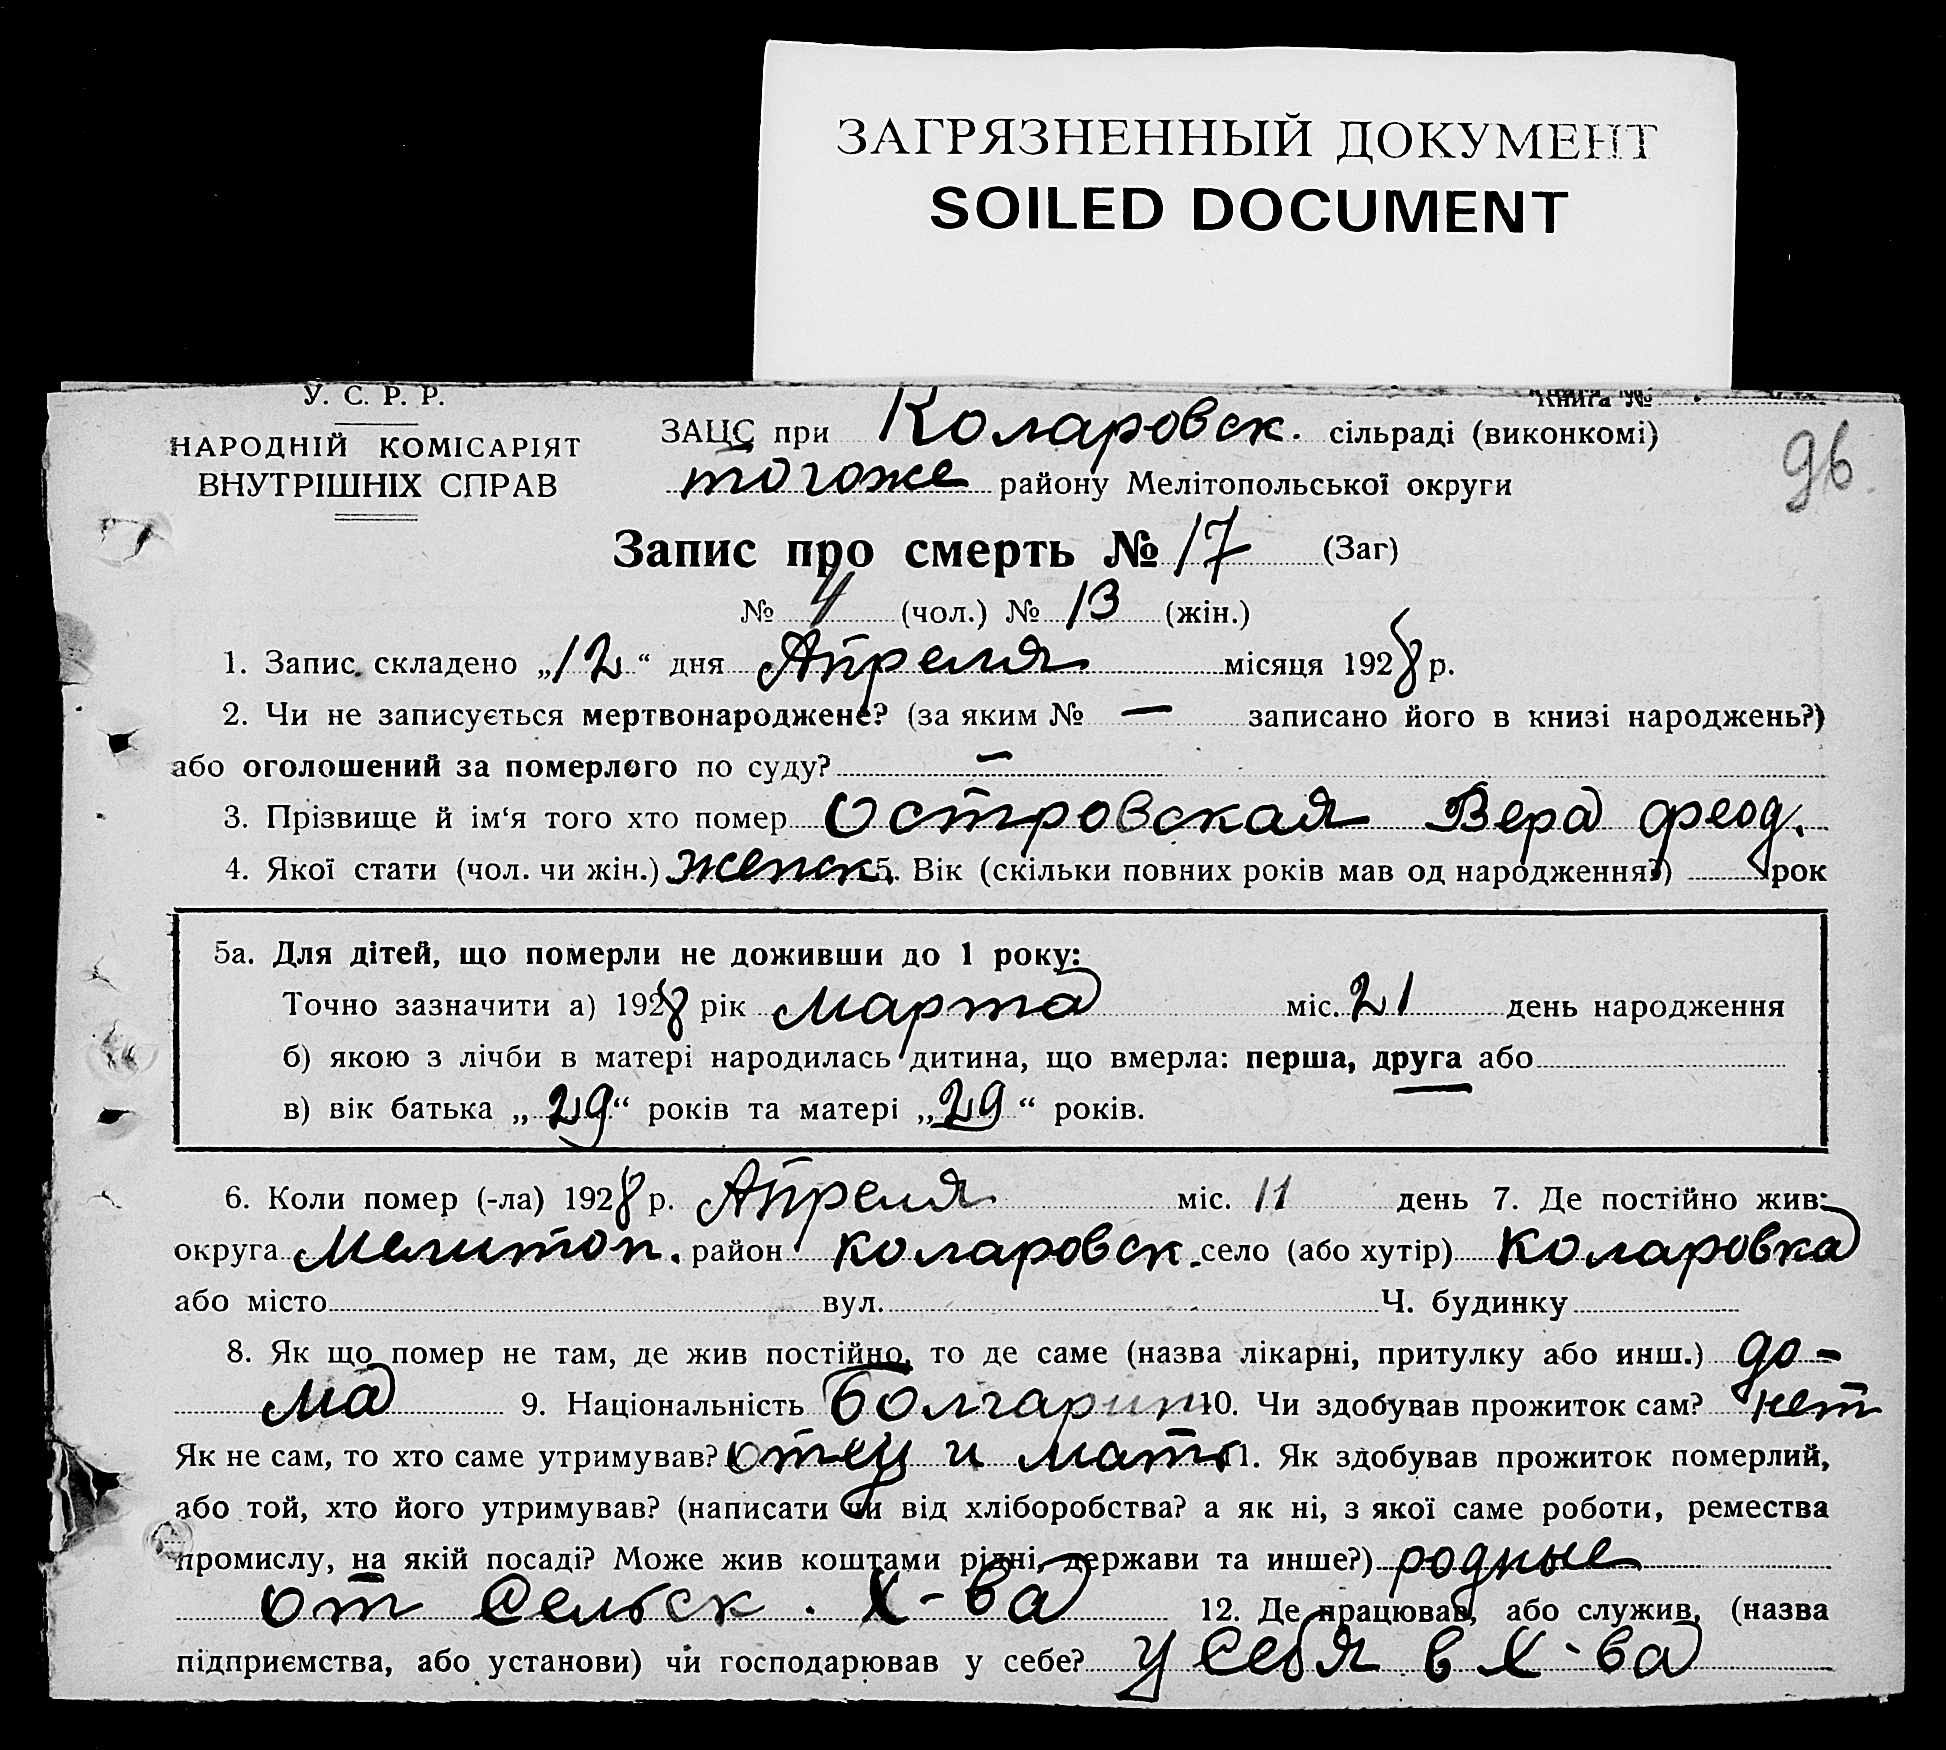 ЗАГРЯЗНЕННЫЙ ДОКУМЕНТ
SOILED DOCUMENT
У. С. Р. Р.
Книга №
НАРОДНІЙ КОМІСАРІЯТ
ВНУТРІШНІХ СПРАВ
ЗАЦС при Коларовск. сільраді (виконкомі)
тогоже району Мелітопольської округи
96
Запис про смерть № 17 (Заг)
№ 4 (чол.) № 13 (жін.)
1. Запис складено „12“ дня Апреля місяця 1928 р.
2. Чи не записується мертвонароджене? (за яким № — записано його в книзі народжень?)
або оголошений за померлого по суду? —
3. Прізвище й ім‘я того хто помер Островская Вера Феод.
4. Якої стати (чол. чи жін.) женск. 5. Вік (скільки повних років мав од народження?) рок
5а. Для дітей, що померли не доживши до 1 року:
Точно зазначити а) 1928 рік Марта міс. 21 день народження
б) якою з лічби в матері народилась дитина, що вмерла: перша, друга або
в) вік батька „29“ років та матері „29“ років.
6. Коли помер (-ла) 1928 р. Апреля міс. 11 день 7. Де постійно жив:
округа Мелитоп. район Коларовск. село (або хутір) Коларовка
або місто вул. Ч. будинку
8. Як що помер не там, де жив постійно, то де саме (назва лікарні, притулку або инш.) до-
ма 9. Національність Болгарин 10. Чи здобував прожиток сам? нет
Як не сам, то хто саме утримував? отец и мать 11. Як здобував прожиток померлий,
або той, хто його утримував? (написати чи від хліборобства? а як ні, з якої саме роботи, ремества
промислу, на якій посаді? Може жив коштами рідні, держави та инше?) родные
от сельск. х-ва 12. Де працював, або служив, (назва
підприємства, або установи) чи господарював у себе? у себя в х-ва